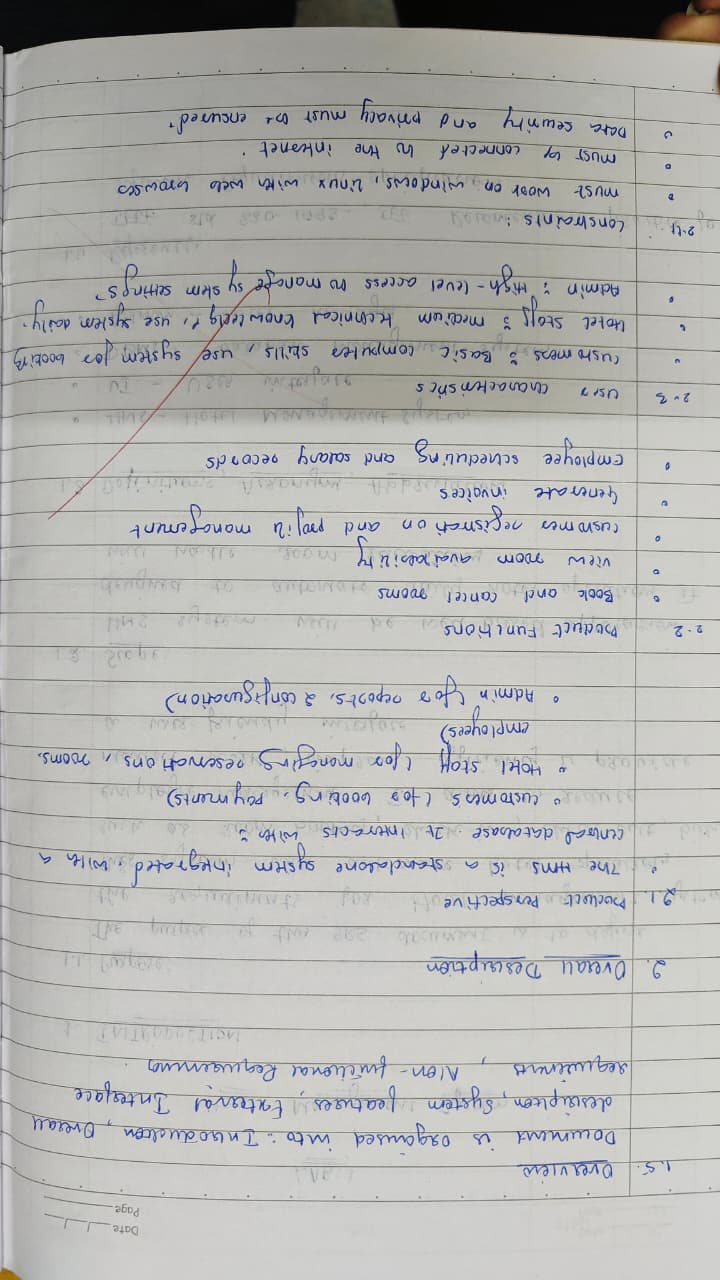 Date
Page
1.5. Overview
Document is organised into: Introduction, Overall
description, System features, External Interface
requirements, Non-functional Requirements.
2. Overall Description
2.1. Product Perspective
• The HMS is a standalone system integrated with a
central database. It interacts with:
• customers (for booking, payments)
• Hotel staff (for managing reservations, rooms.
employees)
• Admin (for reports, & configuration)
2.2 Product Functions
• Book and cancel rooms
• view room availability
• customer registration and profile management
• Generate invoices
• Employee scheduling and salary records
2.3 User characteristics
• customers: Basic computer skills, use system for booking
• Hotel staff: medium technical knowledge, use system daily.
• Admin: High-level access to manage system settings.
2.4 Constraints:
• must work on windows, linux with web browses
• must by connected to the intranet.
• Data security and privacy must be ensured.